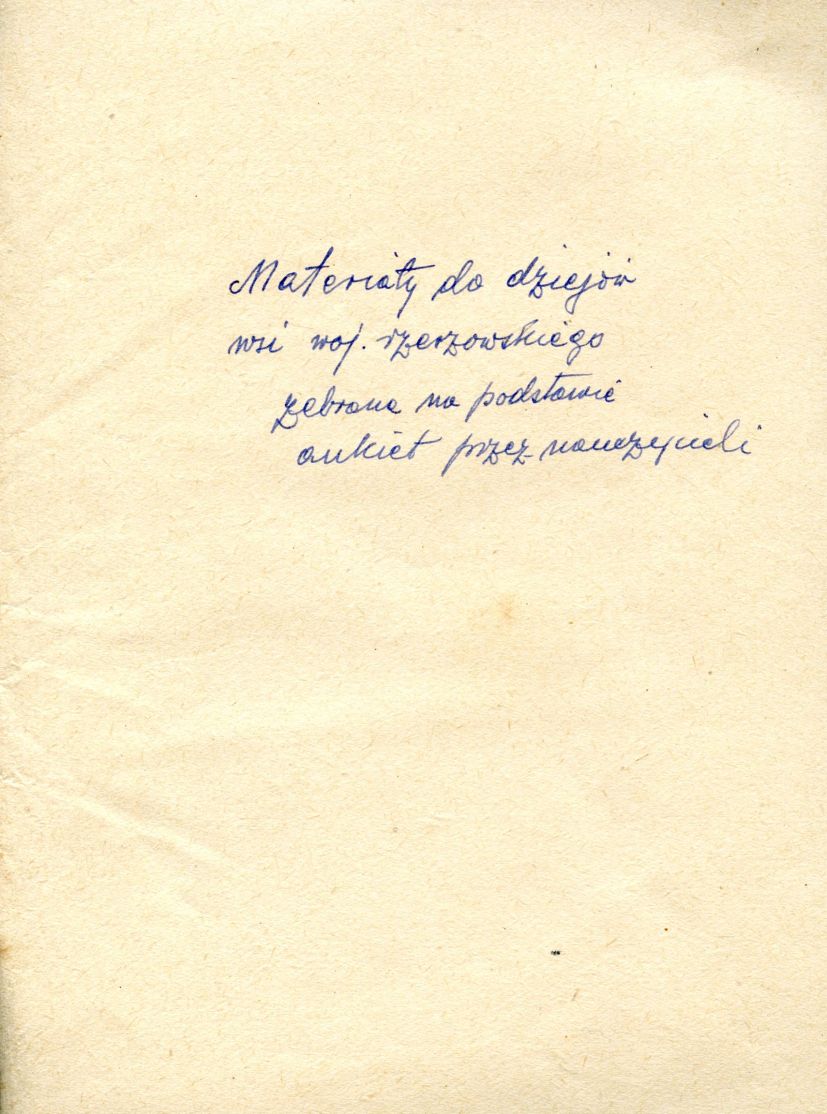 Materiały do dziejów
wsi woj. rzeszowskiego
zebrane na podstawie
ankiet przez nauczycieli